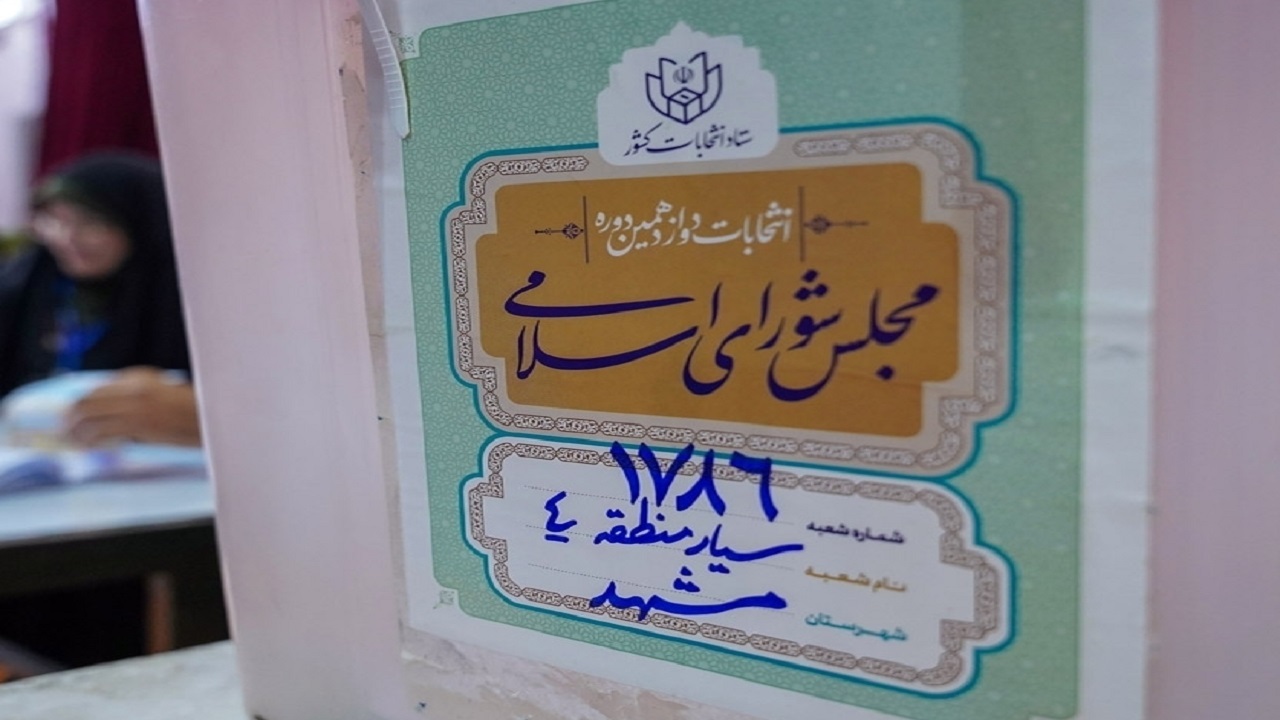 ستاد انتخابات کشور
انتخابات دوازدهمین دوره
مجلس شورای اسلامی
شماره شعبه ۱۷۸۶
نام شعبه سیار منطقه ٤
شهرستان مشهد